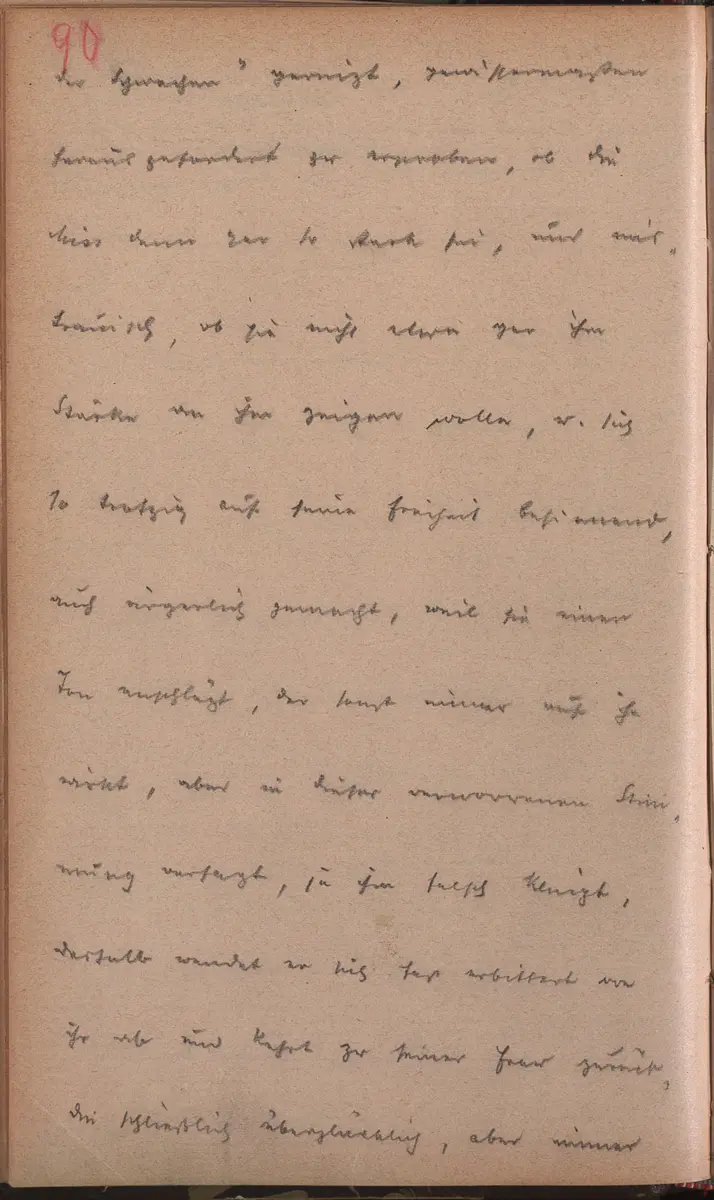 90
der Schwachen" gereizt, gewissermaßen
herausgefordert zu erproben, ob die
Miss denn gar so stark sei, und mis-
trauisch, ob sie nicht etwa gar ihre
Stärke an ihm zeigen wolle, u. sich
so trotzig auf seine Freiheit besinnend,
auch ärgerlich gemacht, weil sie einen
Ton anschlägt, der sonst immer auf ihn
wirkt, aber in dieser verworrenen Stim-
mung versagt, ja ihm falsch klingt,
deshalb wendet er sich fast erbittert von
ihr ab und kehrt zu seiner Frau zurück,
die schließlich überglücklich, aber immer